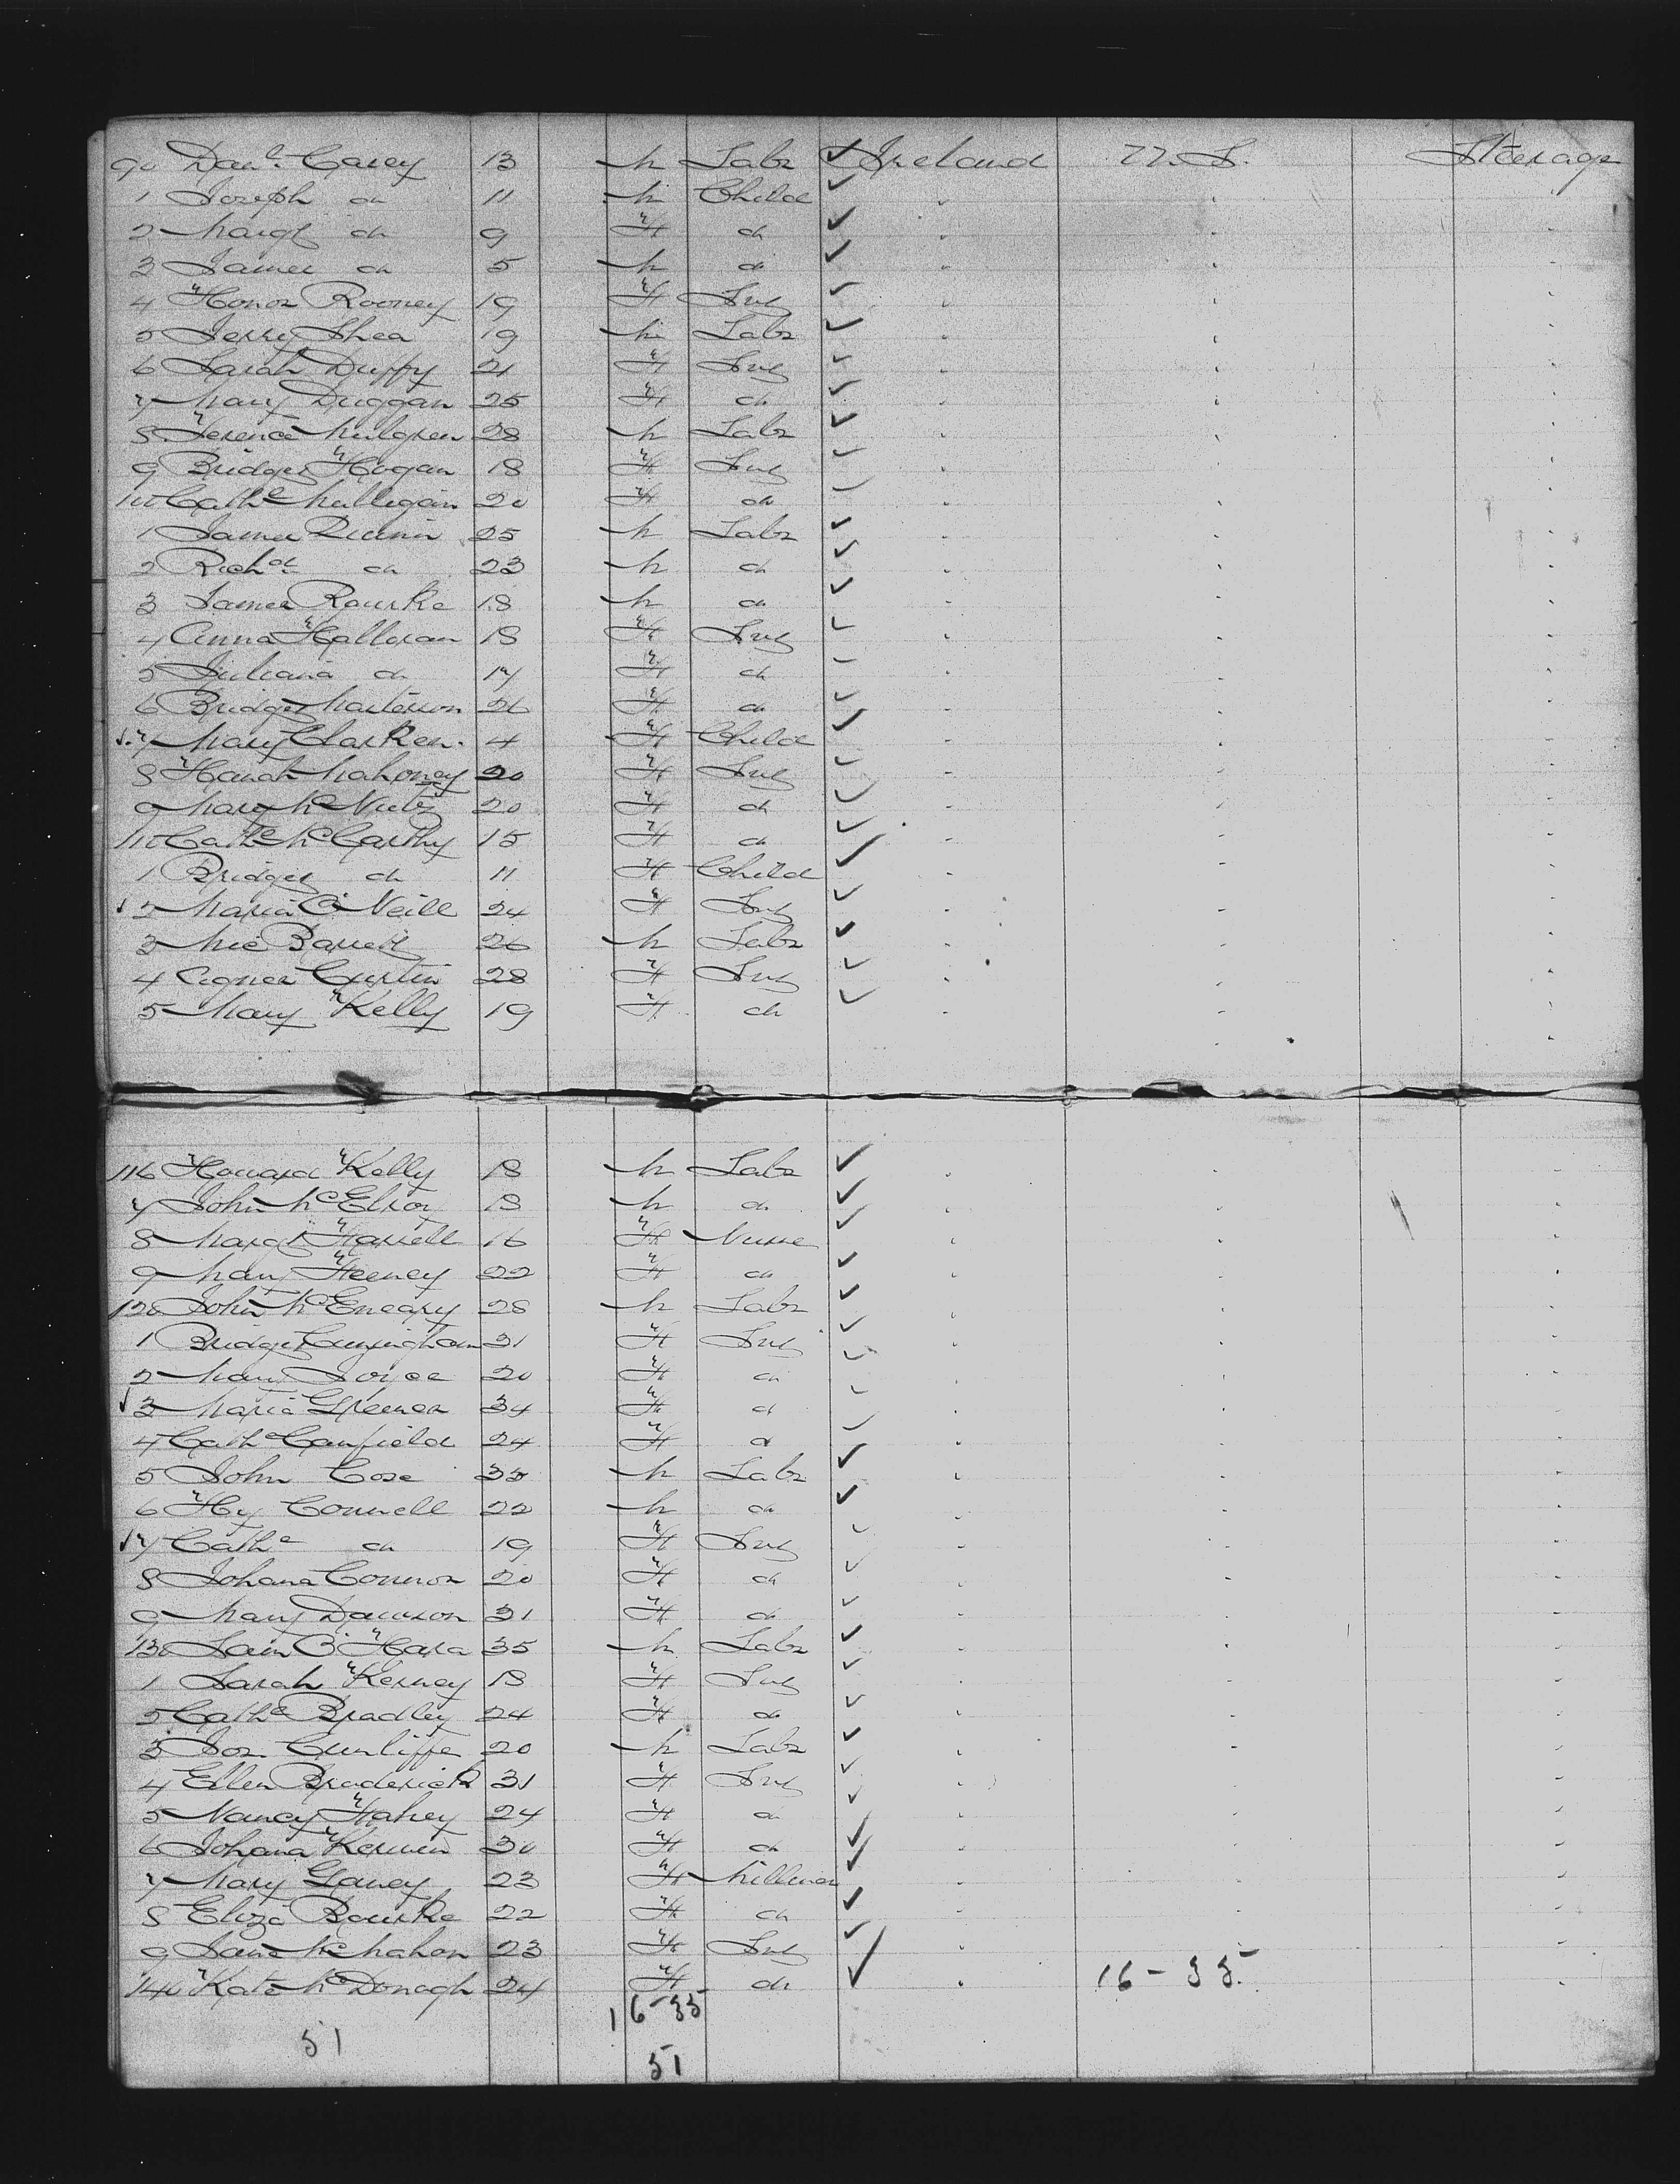 90 Danl. Carey 13 M Labr ✓ Ireland U. S. Steerage
1 Joseph do 11 M Child ✓ " " "
2 Margt do 9 F do ✓ " " "
3 James do 5 M do ✓ " " "
4 Honor Rooney 19 F Svt ✓ " " "
5 Jerry Shea 19 M Labr ✓ " " "
6 Sarah Duffy 21 F Svt ✓ " " "
7 Mary Duggan 25 F do ✓ " " "
8 Terence Mulgrew 28 M Labr ✓ " " "
9 Bridget Hogan 18 F Svt ✓ " " "
100 Cathe Mulligan 20 F do ✓ " " "
1 James Quinn 25 M Labr ✓ " " "
2 Richd. do 23 M do ✓ " " "
3 James Rourke 18 M do ✓ " " "
4 Anna Halloran 18 F Svt ✓ " " "
5 Juliana do 17 F do ✓ " " "
6 Bridget Masterson 26 F do ✓ " " "
7 Mary Clarken 4 F Child ✓ " " "
8 Hanah Mahoney 20 F Svt ✓ " " "
9 Mary McNulty 20 F do ✓ " " "
110 Cathe McCarthy 15 F do ✓ " " "
1 Bridget do 11 F Child ✓ " " "
2 Maria O'Neill 24 F Svt ✓ " " "
3 Mic Barrett 26 M Labr ✓ " " "
4 Agnes Curtin 28 F Svt ✓ " " "
5 Mary Kelly 19 F do ✓ " " "
116 Howard Kelly 18 M Labr ✓ " " "
7 John McElroy 18 M do ✓ " " "
8 Margt Farrell 16 F Nurse ✓ " " "
9 Mary Feeney 22 F do ✓ " " "
120 John McEneary 28 M Labr ✓ " " "
1 Bridget Cunningham 31 F Svt ✓ " " "
2 Mary Joyce 20 F do ✓ " " "
3 Maria Spencer 34 F do ✓ " " "
4 Cathe Canfield 24 F do ✓ " " "
5 John Cose 35 M Labr ✓ " " "
6 Hy Connell 22 M do ✓ " " "
7 Cathe do 19 F Svt ✓ " " "
8 Johana Connor 20 F do ✓ " " "
9 Mary Dawson 31 F do ✓ " " "
130 Sam O'Hara 35 M Labr ✓ " " "
1 Sarah Kerney 18 F Svt ✓ " " "
2 Cathe Bradley 24 F do ✓ " " "
3 Jos. Cunliffe 20 M Labr ✓ " " "
4 Ellen Broderick 31 F Svt ✓ " " "
5 Nancy Fahey 24 F do ✓ " " "
6 Johana Kerwin 30 F do ✓ " " "
7 Mary Ganey 23 F Milliner ✓ " " "
8 Eliza Rourke 22 F do ✓ " " "
9 Jane McMahon 23 F Svt ✓ " " "
140 Kate McDonagh 24 F do ✓ " 16-35 "
16-35
51 51